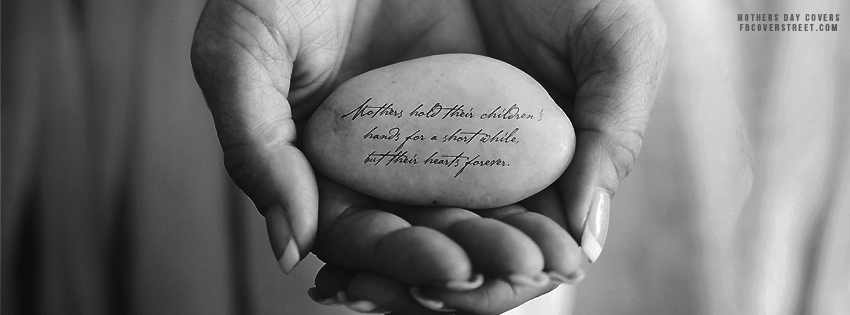 MOTHERS DAY COVERS
FBCOVERSTREET.COM
Mothers hold their children's
hands for a short while,
but their hearts forever.